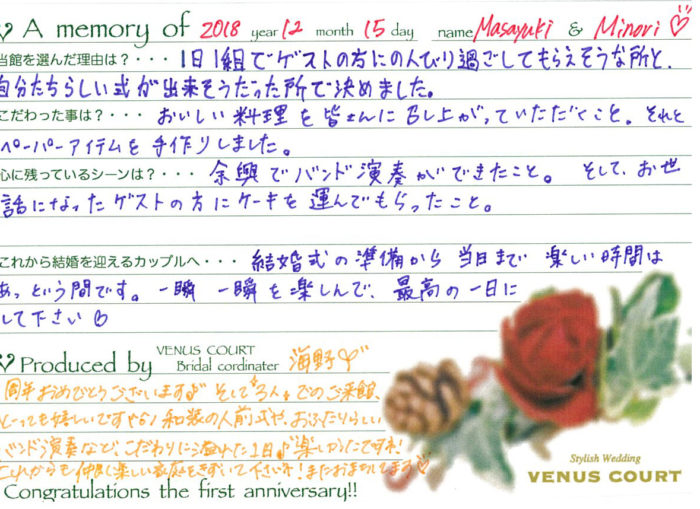 A memory of 2018 year 12 month 15 day name Masayuki & Minori
当館を選んだ理由は？・・・ 1日1組でゲストの方にのんびり過ごしてもらえそうな所と、
自分たちらしい式が出来そうだった所で決めました。
こだわった事は？・・・ おいしい料理を皆さんに召し上がっていただくこと。それと
ペーパーアイテムを手作りしました。
心に残っているシーンは？・・・ 余興でバンド演奏ができたこと。そして、お世
話になったゲストの方にケーキを運んでもらったこと。
これから結婚を迎えるカップルへ・・・ 結婚式の準備から当日まで楽しい時間は
あっという間です。一瞬一瞬を楽しんで、最高の一日に
して下さい
Produced by VENUS COURT Bridal cordinater 海野
周年おめでとうございます♪ そして3人でのご来館、
とっても嬉しいです 和装の人前式や、おふたりらしい
バンド演奏など、こだわりに溢れた1日♪楽しかったですネ!
これからも仲良く楽しい家庭をきずいて下さいネ!またお待ちしてます
Congratulations the first anniversary!!
Stylish Wedding
VENUS COURT